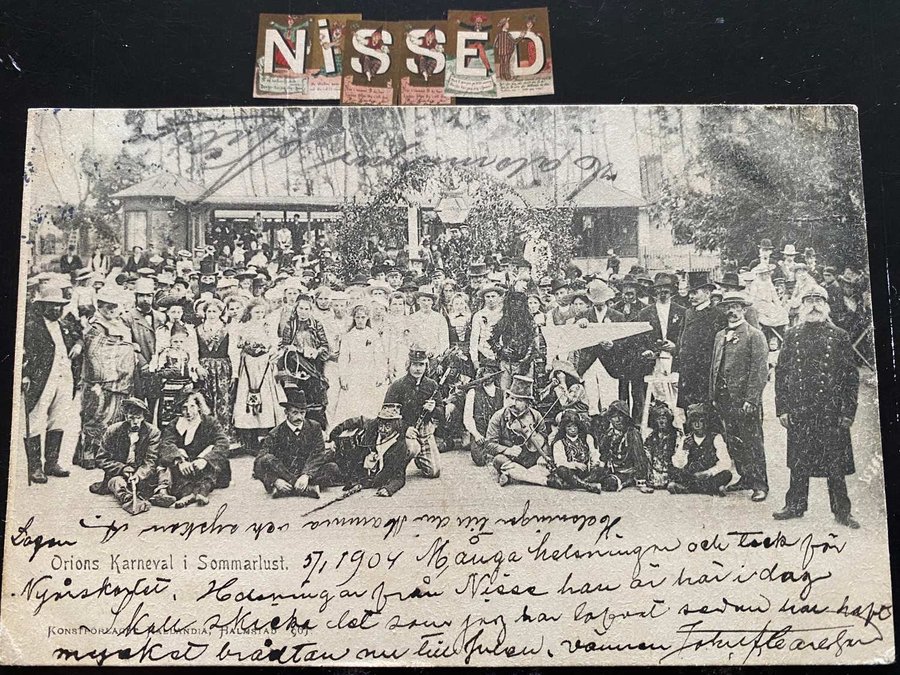 NISSED
Helsningar till din Mamma och syskon
Orions Karneval i Sommarlust. 5/1, 1904 Många helsningar och tack för
Nyårskortet. Helsningar från Nisse han är här i dag
Skall skicka det som jag har lofvat sedan har haft
KONSTFÖRLAGET HALLANDIA, HALMSTAD
mycket brådtan nu till Julen. vännen John